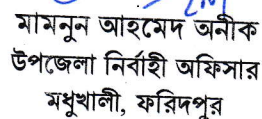 মামনুন আহমেদ অনীক
উপজেলা নির্বাহী অফিসার
মধুখালী, ফরিদপুর